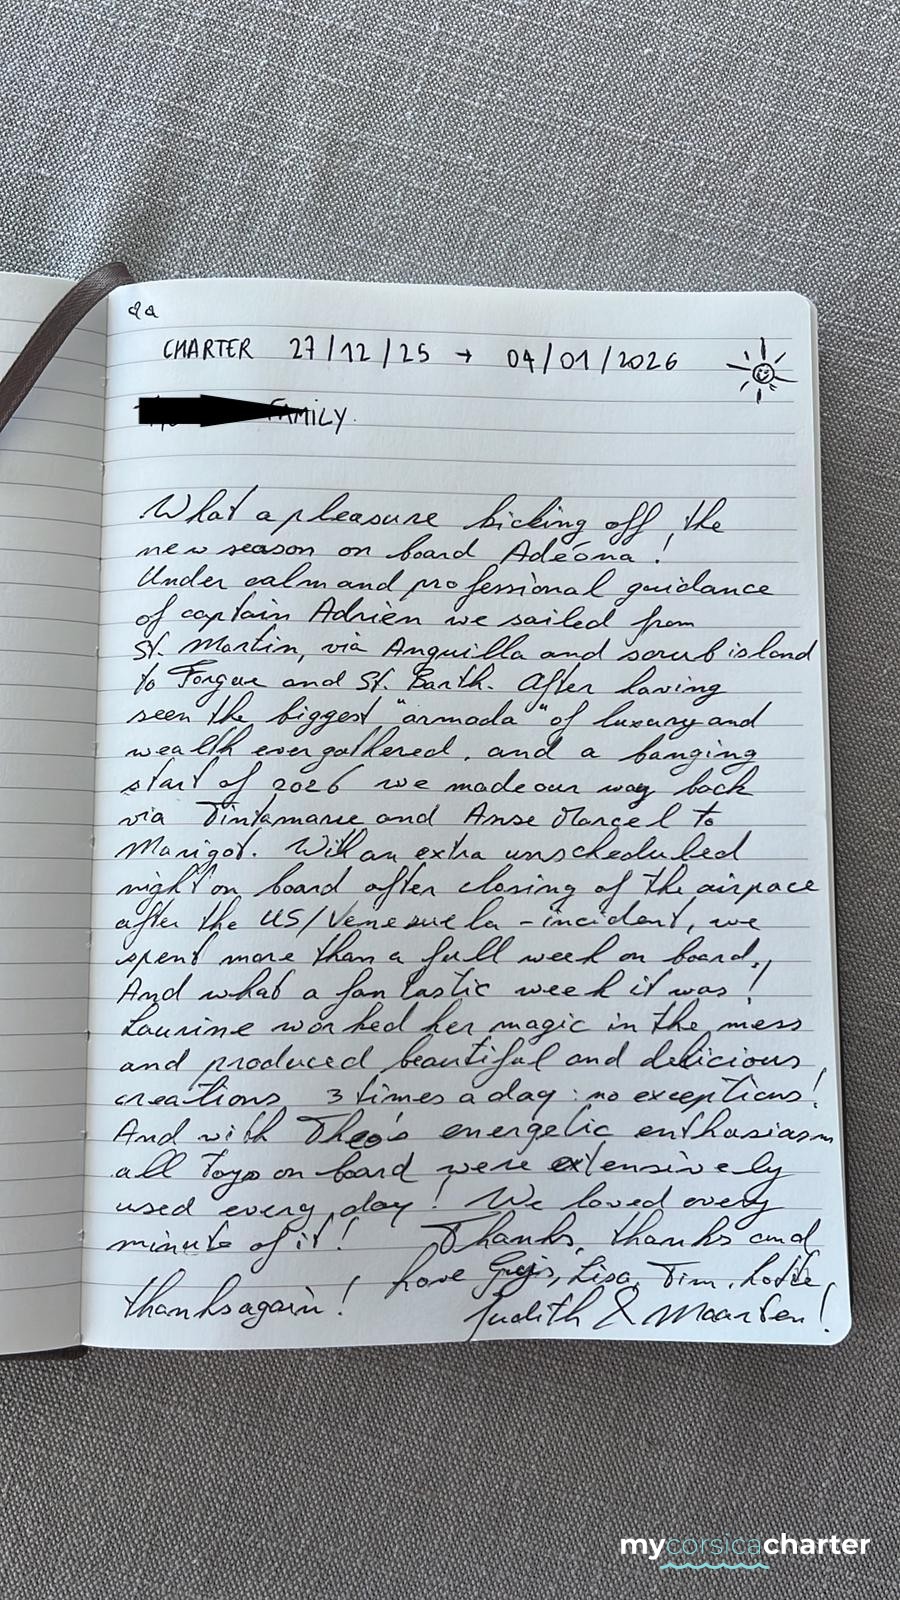 CHARTER 27/12/25 → 04/01/2026
FAMILY
What a pleasure kicking off the
new season on board Adéona!
Under calm and professional guidance
of captain Adrien we sailed from
St. Martin, via Anguilla and scrub island
to Forgue and St. Barth. After having
seen the biggest "armada" of luxury and
wealth ever gathered, and a banging
start of 2026 we made our way back
via Tintamarre and Anse Marcel to
Marigot. With an extra unscheduled
night on board after closing of the airpace
after the US/Venezuela-incident, we
spent more than a full week on board.
And what a fantastic week it was!
Laurine worked her magic in the mess
and produced beautiful and delicious
creations 3 times a day: no exceptions!
And with Theo's energetic enthasiasm
all toys on board were extensively
used every day! We loved every
minute of it! Thanks, thanks and
thanks again! Love Gijs, Lisa, Tim, Lotte,
Judith & Maarten!
mycorsicacharter